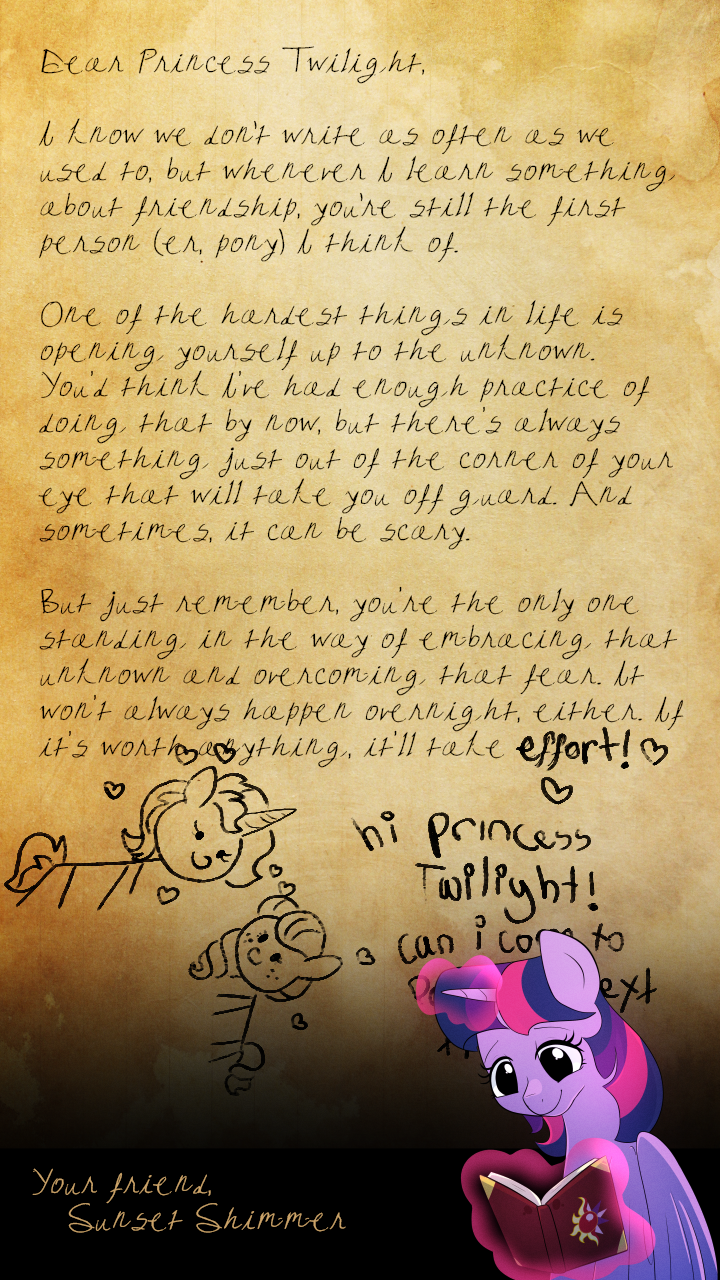 Dear Princess Twilight,
I know we don't write as often as we
used to, but whenever I learn something
about friendship, you're still the first
person (er, pony) I think of.
One of the hardest things in life is
opening yourself up to the unknown.
You'd think I've had enough practice of
doing that by now, but there's always
something just out of the corner of your
eye that will take you off guard. And
sometimes, it can be scary.
But just remember, you're the only one
standing in the way of embracing that
unknown and overcoming that fear. It
won't always happen overnight, either. If
it's worth anything, it'll take effort!
hi princess
Twilight!
can i to